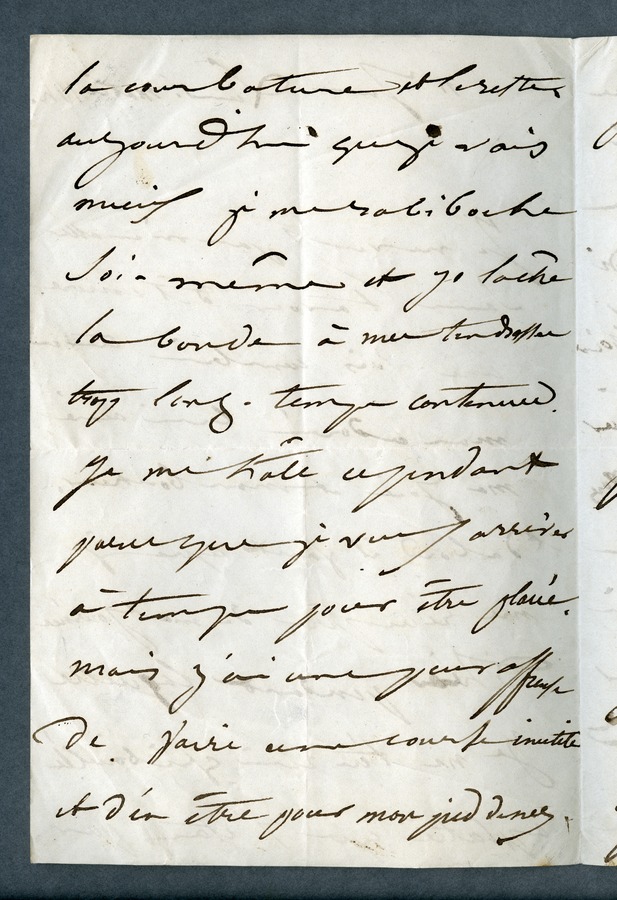 la courbature et le reste,
aujourd'hui que je vais
mieux je me rabiboche
soi-même et je lâche
la bonde à mes tendresses
trop long-temps contenues.
Je me hâte cependant
parce que je veux arriver
à temps pour être placé,
mais j'ai une peur affreuse
de faire une course inutile
et d'en être pour mon pied de nez.